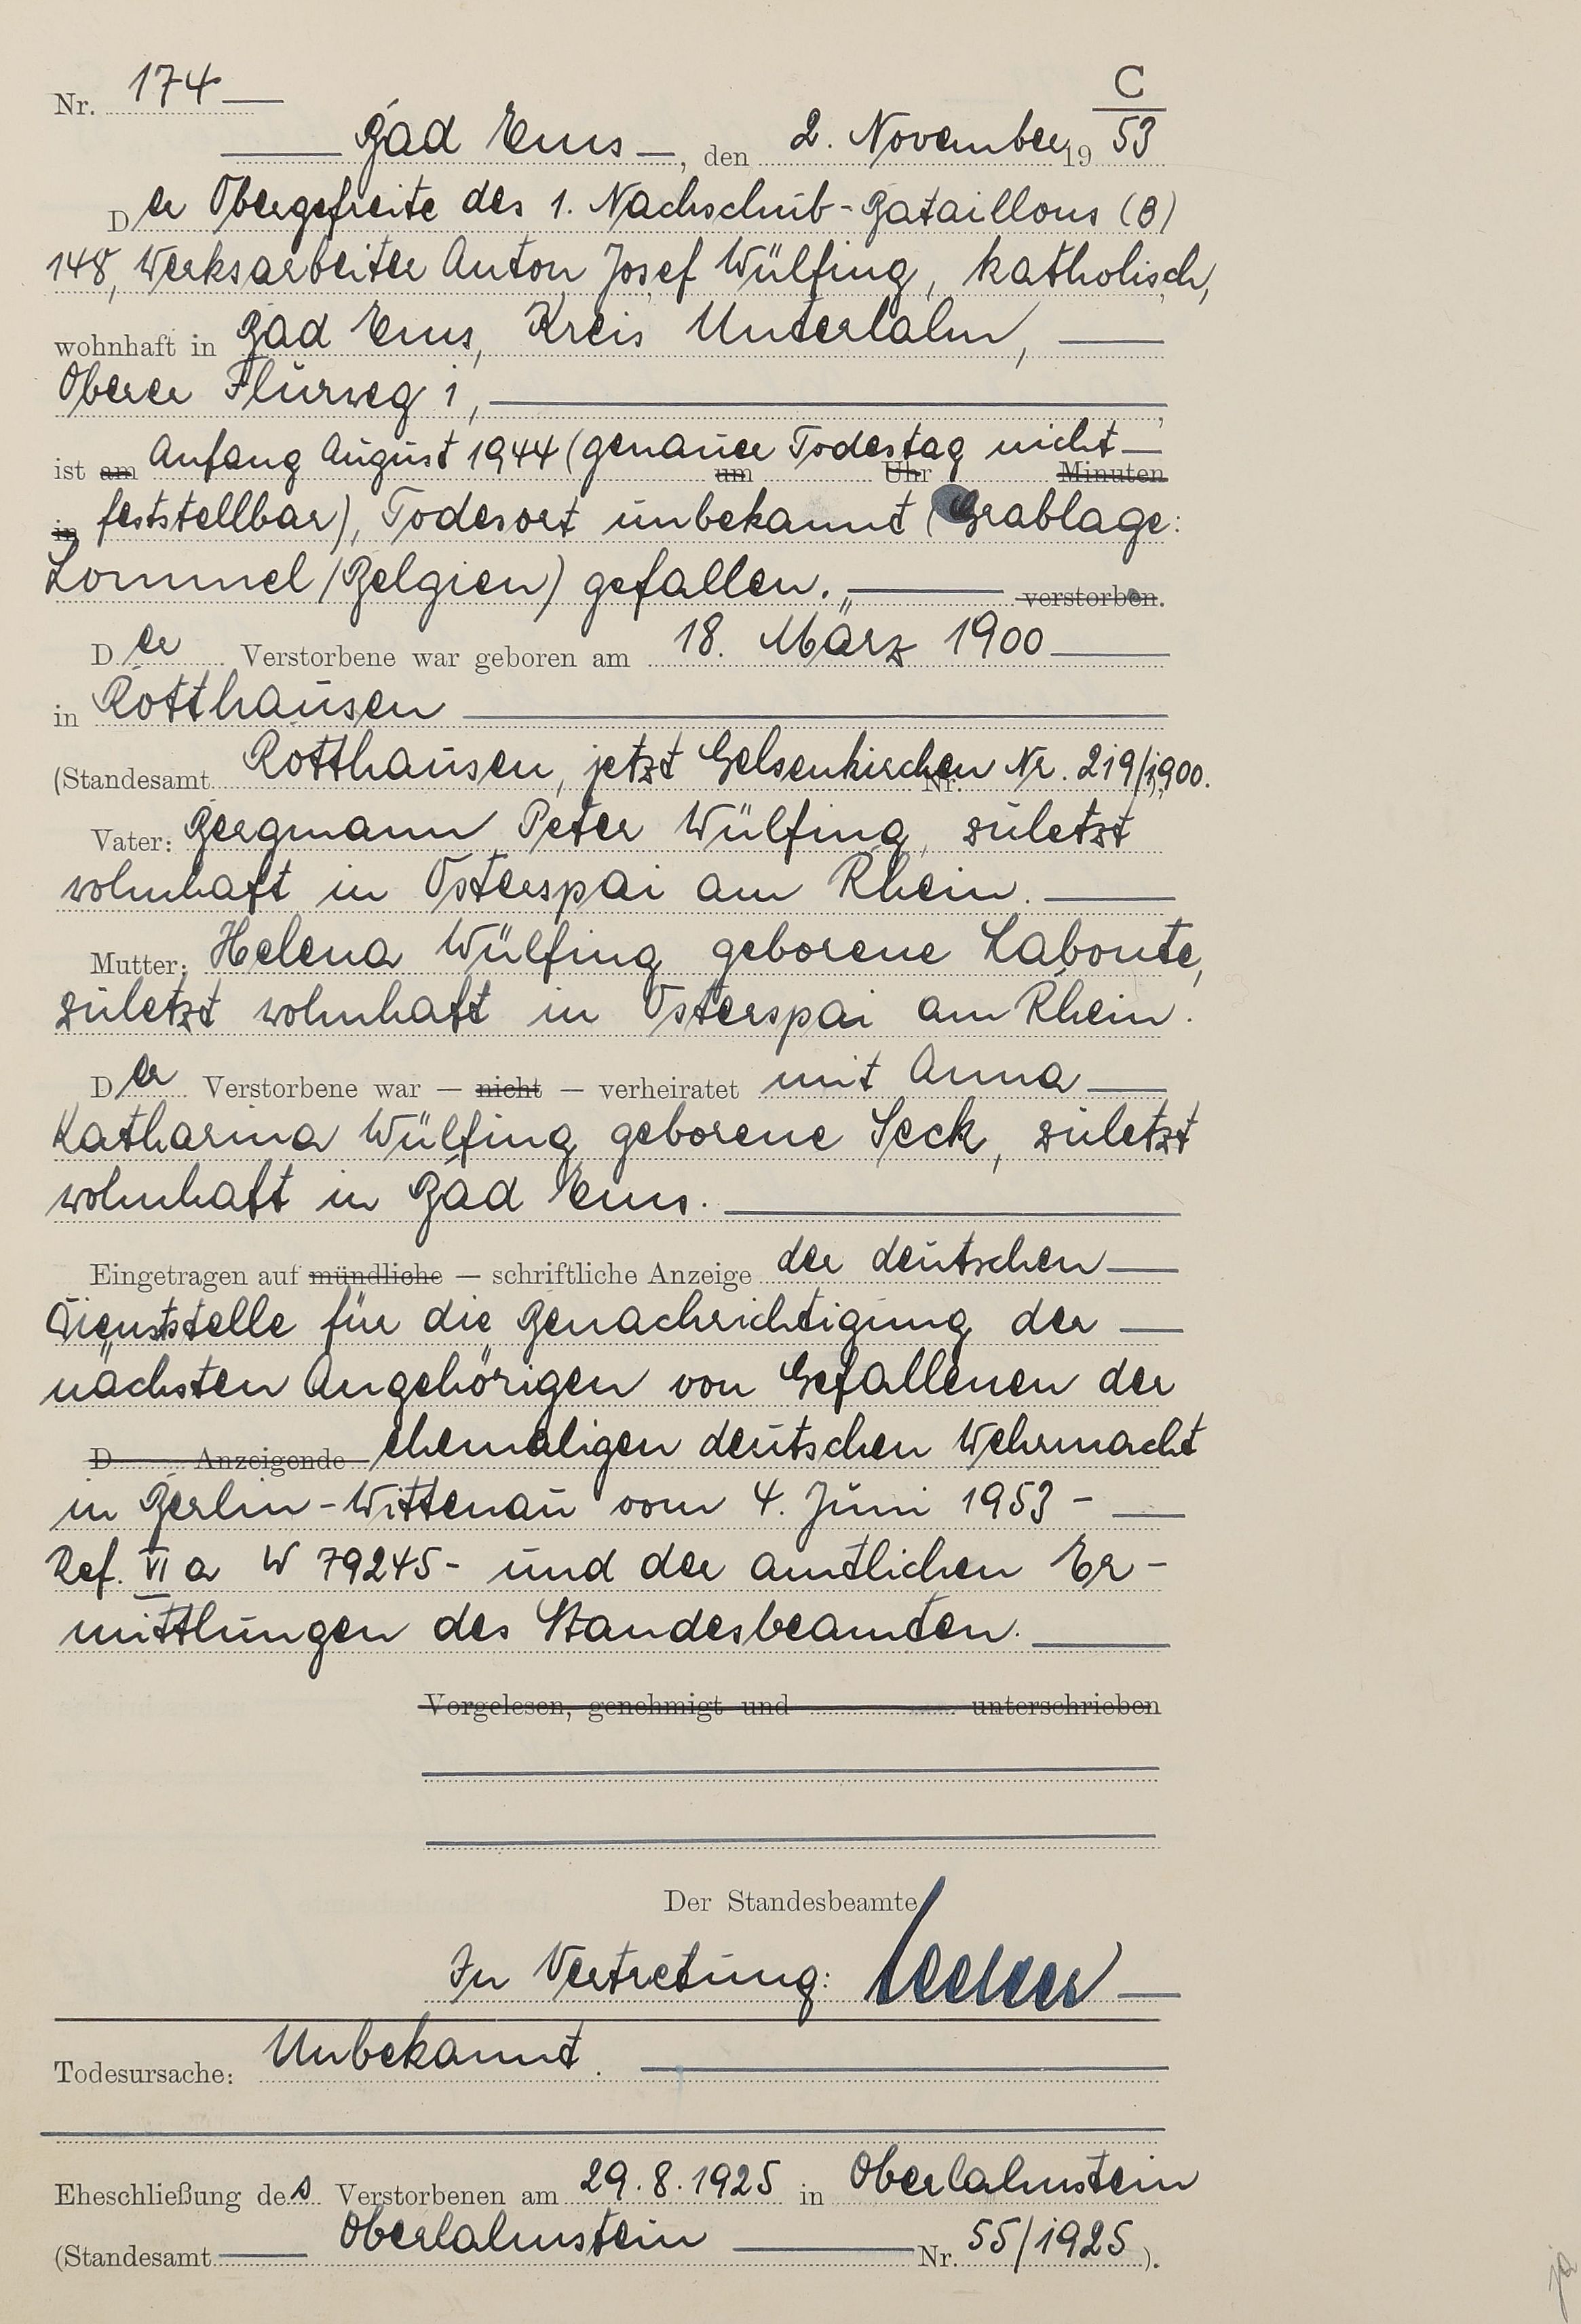 C
Nr. 174
Bad Ems, den 2. November 1953
Der Obergefreite des 1. Nachschub-Bataillons (B)
148, Werksarbeiter Anton Josef Wülfing, katholisch,
wohnhaft in Bad Ems, Kreis Unterlahn,
Oberer Flurweg 1,
ist am Anfang August 1944 (genauer Todestag nicht
um Uhr Minuten
in feststellbar), Todesort unbekannt (Grablage:
Lommel/Belgien) gefallen. verstorben.
Der Verstorbene war geboren am 18. März 1900
in Rotthausen
(Standesamt Rotthausen, jetzt Gelsenkirchen Nr. Nr. 219/1900.
Vater: Bergmann Peter Wülfing, zuletzt
wohnhaft in Osterspai am Rhein.
Mutter: Helena Wülfing geborene Labonte,
zuletzt wohnhaft in Osterspai am Rhein.
Der Verstorbene war — nicht — verheiratet mit Anna
Katharina Wülfing geborene Seck, zuletzt
wohnhaft in Bad Ems.
Eingetragen auf mündliche — schriftliche Anzeige der deutschen
Dienststelle für die Benachrichtigung der
nächsten Angehörigen von Gefallenen der
D Anzeigende ehemaligen deutschen Wehrmacht
in Berlin-Wittenau vom 4. Juni 1953 -
Ref. VI a W 79245- und der amtlichen Er-
mittlungen des Standesbeamten.
Vorgelesen, genehmigt und unterschrieben
Der Standesbeamte
In Vertretung:
Todesursache: Unbekannt.
Eheschließung des Verstorbenen am 29.8.1925 in Oberlahnstein
(Standesamt Oberlahnstein Nr. 55/1925).